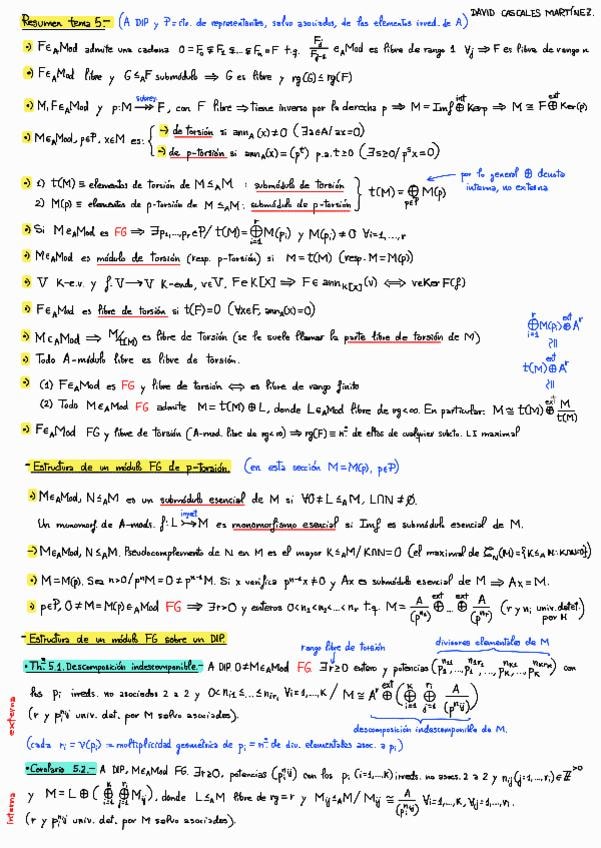 DAVID CASCALES MARTÍNEZ.
Resumen tema 5.- (A DIP y P = cto. de representantes, salvo asociados, de los elementos irred. de A)
·) F∈ₐMod admite una cadena 0 = F₀ ⊊ F₁ ⊊ ... ⊊ Fₙ = F t.q. Fⱼ/Fⱼ₋₁ ∈ₐMod es libre de rango 1 ∀j ⇒ F es libre de rango n
·) F∈ₐMod libre y G≤ₐF submódulo ⇒ G es libre y rg(G) ≤ rg(F)
·) M,F∈ₐMod y p: M ↠ F, con F libre ⇒ tiene inverso por la derecha p ⇒ M = Imf ⊕ Kerp ⇒ M ≅ F ⊕ Ker(p)
·) M∈ₐMod, p∈P, x∈M es: → de torsión si annₐ(x) ≠ 0 (∃a∈A / ax=0)
→ de p-torsión si annₐ(x) = (pᵗ) p.a. t≥0 (∃s≥0 / pˢx=0)
por lo general ⊕ denota interna, no externa
·) 1) t(M) ≡ elementos de torsión de M≤ₐM : submódulo de torsión
2) M(p) ≡ elementos de p-torsión de M≤ₐM : submódulo de p-torsión } t(M) = ⊕ M(p) p∈P
·) Si M∈ₐMod es FG ⇒ ∃p₁,...,pᵣ∈P / t(M) = ⊕ᵢ₌₁ʳ M(pᵢ) y M(pᵢ) ≠ 0 ∀i=1,...,r
·) M∈ₐMod es módulo de torsión (resp. p-torsión) si M = t(M) (resp. M = M(p))
·) V K-e.v. y f: V → V K-endo, v∈V, F∈K[X] ⇒ F∈ann_K[X](v) ⇔ v∈Ker F(f)
·) F∈ₐMod es libre de torsión si t(F)=0 (∀x∈F, annₐ(x)=0)
·) M∈ₐMod ⇒ M/t(M) es libre de torsión (se le suele llamar la parte libre de torsión de M)
·) Todo A-módulo libre es libre de torsión.
⊕ᵢ₌₁ʳ M(pᵢ) ⊕ Aʳ
≅
t(M) ⊕ Aʳ
≅
·) (1) F∈ₐMod es FG y libre de torsión ⇔ es libre de rango finito
(2) Todo M∈ₐMod FG admite M = t(M) ⊕ L, donde L∈ₐMod libre de rg<∞. En particular: M ≅ t(M) ⊕ M/t(M)
·) F∈ₐMod FG y libre de torsión (A-mod. libre de rg<∞) ⇒ rg(F) ≡ nº de eltos de cualquier subcto. LI maximal
- Estructura de un módulo FG de p-torsión. (en esta sección M = M(p), p∈P)
·) M∈ₐMod, N≤ₐM es un submódulo esencial de M si ∀0≠L≤ₐM, L∩N ≠ ∅.
Un monomorf de A-mods. f: L ↣ M es monomorfismo esencial si Imf es submódulo esencial de M.
→) M∈ₐMod, N≤ₐM. Pseudocomplemento de N en M es el mayor K≤ₐM / K∩N = 0 (el maximal de ζ_N(M) = {K≤ₐM : K∩N=0})
·) M = M(p). Sea n>0 / pⁿM = 0 ≠ pⁿ⁻¹M. Si x verifica pⁿ⁻¹x ≠ 0 y Ax es submódulo esencial de M ⇒ Ax = M.
·) p∈P, 0≠M = M(p)∈ₐMod FG ⇒ ∃r>0 y enteros 0<n₁≤n₂≤...≤nᵣ t.q. M ≅ A/(pⁿ¹) ⊕ ... ⊕ A/(pⁿʳ) (r y nᵢ univ. detet. por M)
- Estructura de un módulo FG sobre un DIP.
rango libre de torsión
divisores elementales de M
· Thª 5.1. Descomposición indescomponible.- A DIP 0≠M∈ₐMod FG ∃r≥0 entero y potencias (p₁ⁿ¹¹,...,p₁ⁿ¹ʳ¹,...,p_kⁿᵏ¹,...,p_kⁿᵏʳᵏ) con
los pᵢ irreds. no asociados 2 a 2 y 0<nᵢ₁≤...≤nᵢᵣᵢ ∀i=1,...,k / M ≅ Aʳ ⊕ (⊕ᵢ₌₁ᵏ ⊕ⱼ₌₁ʳⁱ A/(pᵢⁿⁱʲ))
(r y pᵢⁿⁱʲ univ. det. por M salvo asociados).
descomposición indescomponible de M.
externa
(cada rᵢ = ν(pᵢ) := multiplicidad geométrica de pᵢ = nº de div. elementales asoc. a pᵢ)
· Corolario 5.2.- A DIP, M∈ₐMod FG. ∃r≥0, potencias (pᵢⁿⁱʲ) con los pᵢ (i=1,...,k) irreds. no asocs. 2 a 2 y nᵢⱼ (j=1,...,rᵢ)∈ℤ^>0
y M = L ⊕ (⊕ᵢ₌₁ᵏ ⊕ⱼ₌₁ʳⁱ Mᵢⱼ), donde L≤ₐM libre de rg=r y Mᵢⱼ≤ₐM / Mᵢⱼ ≅ A/(pᵢⁿⁱʲ) ∀i=1,...,k, ∀j=1,...,rᵢ.
(r y pᵢⁿⁱʲ univ. det. por M salvo asociados).
interna